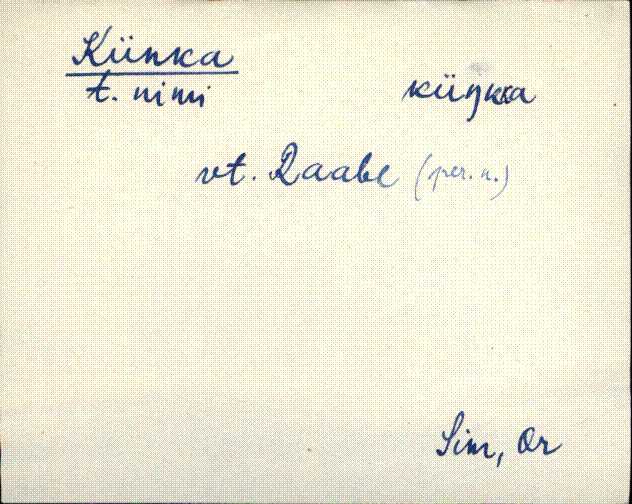 Künka
t. nimi küŋκa
vt. Raabe (per. n.)
Sim, Or